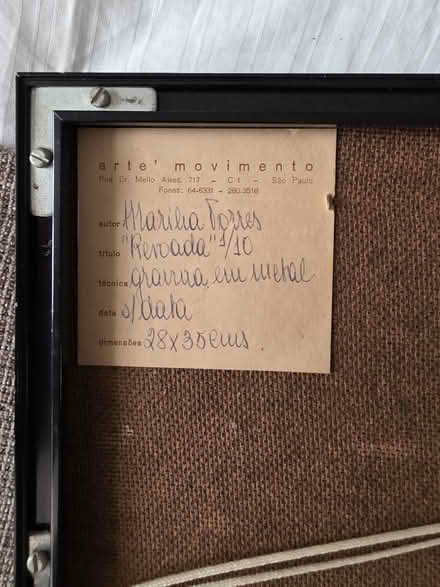 arte' movimento
Rua Dr. Mello Alves, 717 - C-1 - São Paulo
Fones: 64-6331 - 280-3518
autor Marilia Torres
título "Revoada" 1/10
técnica gravura em metal
data s/data
dimensões 28x35cms